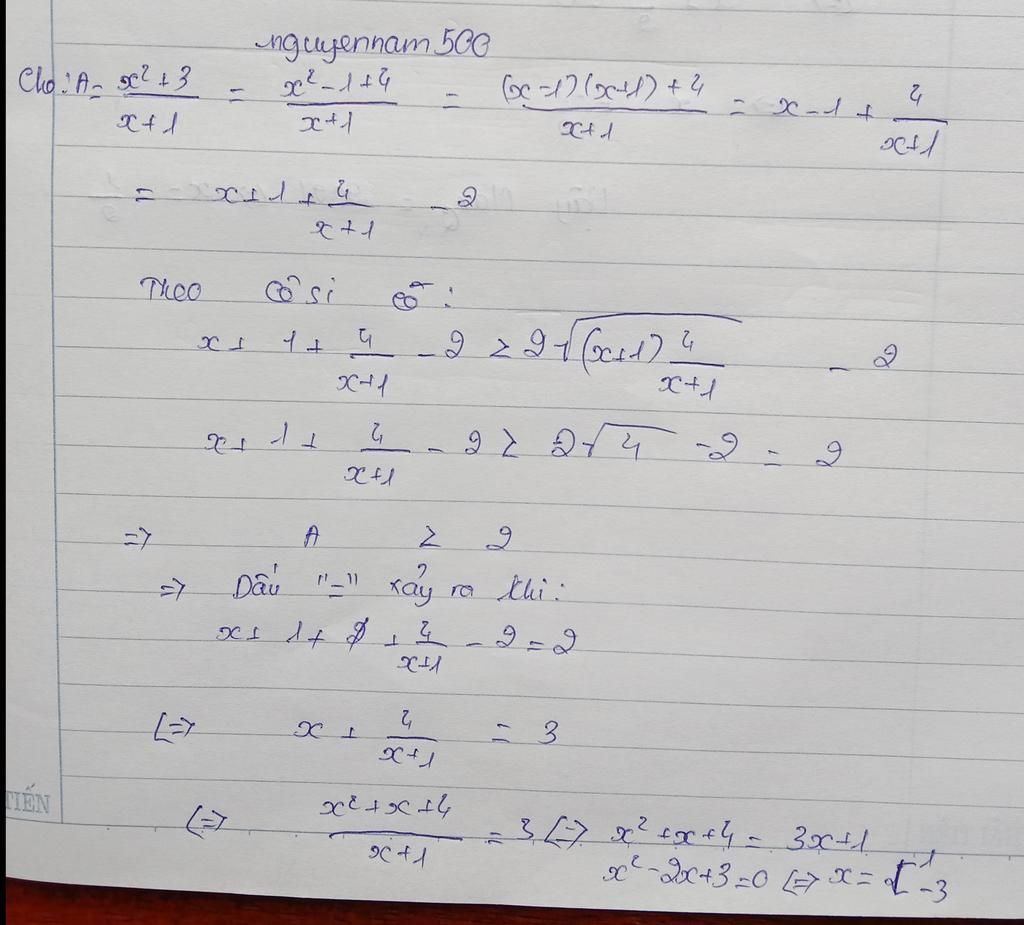 nguyennam 500
Cho: A = x² + 3 / x+1 = x² - 1 + 4 / x+1 = (x-1)(x+1) + 4 / x+1 = x - 1 + 4 / x+1
= x + 1 + 4 / x+1 - 2
Theo Côsi có:
x + 1 + 4 / x+1 - 2 ≥ 2√(x+1) 4 / x+1 - 2
x + 1 + 4 / x+1 - 2 ≥ 2√4 - 2 = 2
=> A ≥ 2
=> Dấu "=" xảy ra khi:
x + 1 + 4 / x+1 - 2 = 2
<=> x + 4 / x+1 = 3
TIẾN
<=> x² + x + 4 / x+1 = 3 <=> x² + x + 4 = 3x+1
x² - 2x + 3 = 0 <=> x = [ 1 -3